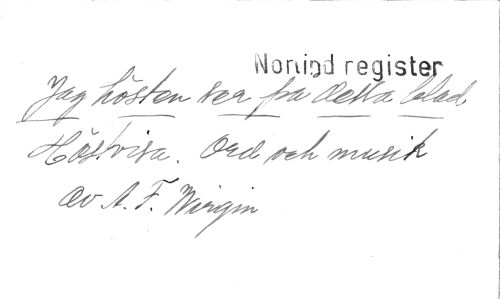 Nortigd register
Jag hösten ser på detta blad
Höstvisa. Ord och musik
av A. F. Wirgin